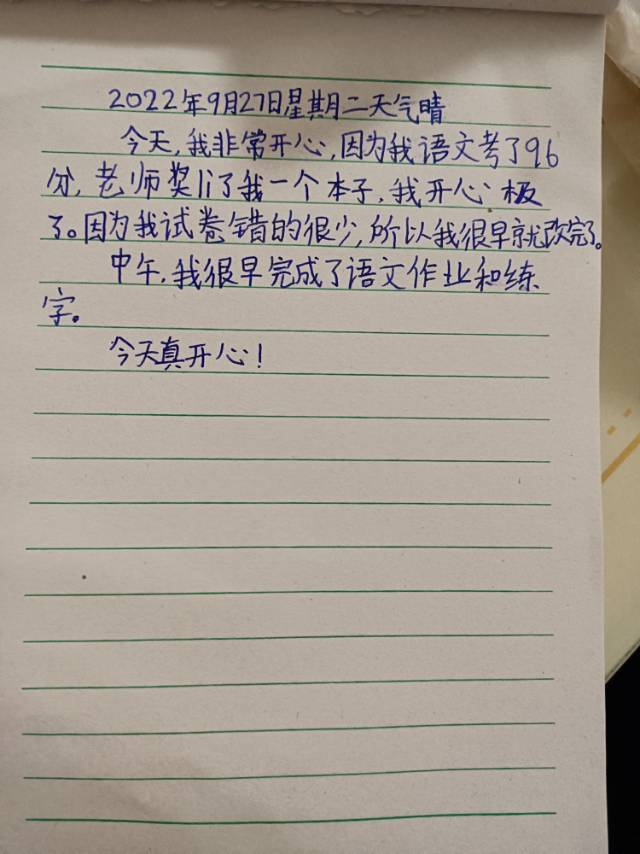 2022年9月27日星期二天气晴
今天,我非常开心,因为我语文考了96
分,老师奖了我一个本子,我开心极
了。因为我试卷错的很少,所以我很早就改完了。
中午,我很早完成了语文作业和练
字。
今天真开心!